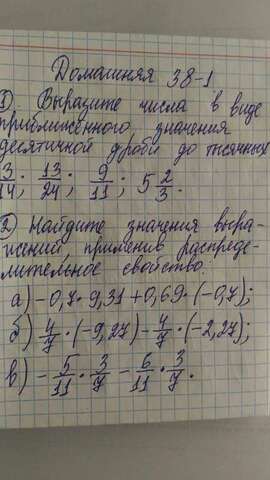 Домашняя 38-1
1) Выразите числа в виде
приближённого значения
десятичной дроби до тысячных
3/14; 13/24; 9/11; 5 2/3.
2) Найдите значения выра-
жений, применив распреде-
лительное свойство:
а) -0,7 · 9,31 + 0,69 · (-0,7);
б) 4/7 · (-9,27) - 4/7 · (-2,27);
в) - 5/11 · 3/7 - 6/11 · 3/7.